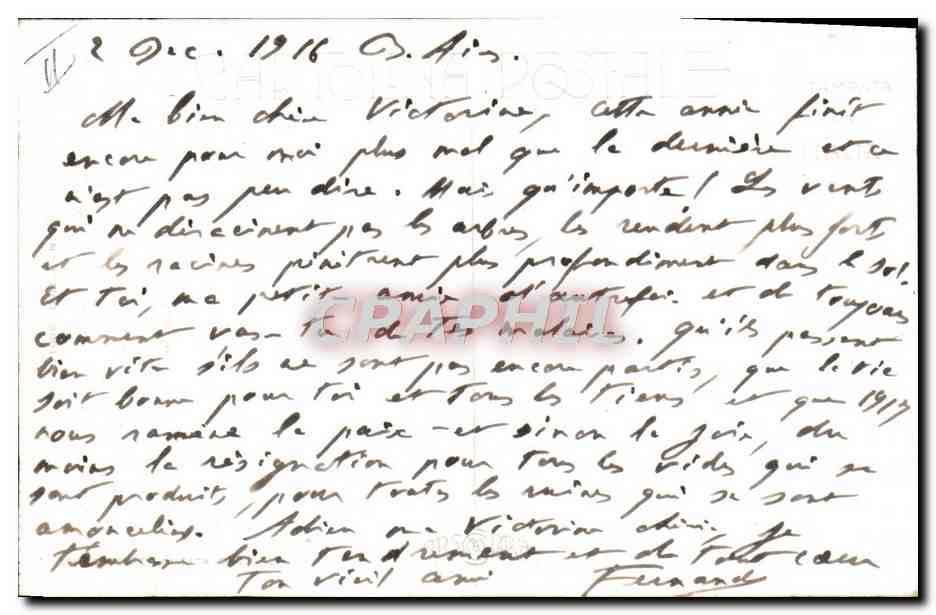 II
2 Dec. 1916 B. Aires.
Ma bien chère Victorine, cette année finit
encore pour moi plus mal que la dernière et ce
n'est pas peu dire. Mais qu'importe! Les vents
qui ne déracinent pas les arbres, les rendent plus forts
et les racines pénètrent plus profondément dans le sol.
Et toi, ma petite amie d'autrefois et de toujours
comment vas-tu de tes malaises. Qu'ils passent
bien vite s'ils ne sont pas encore partis, que la vie
soit bonne pour toi et tous les tiens et que 1917
nous ramène la paix - et sinon la joie, du
moins la résignation pour tous les vides qui se
sont produits, pour toutes les ruines qui se sont
amoncelées. Adieu ma Victorine chérie, je
t'embrasse bien tendrement et de tout cœur
Ton vieil ami Fernand
CPAPHIL
CARTOLINA POSTALE